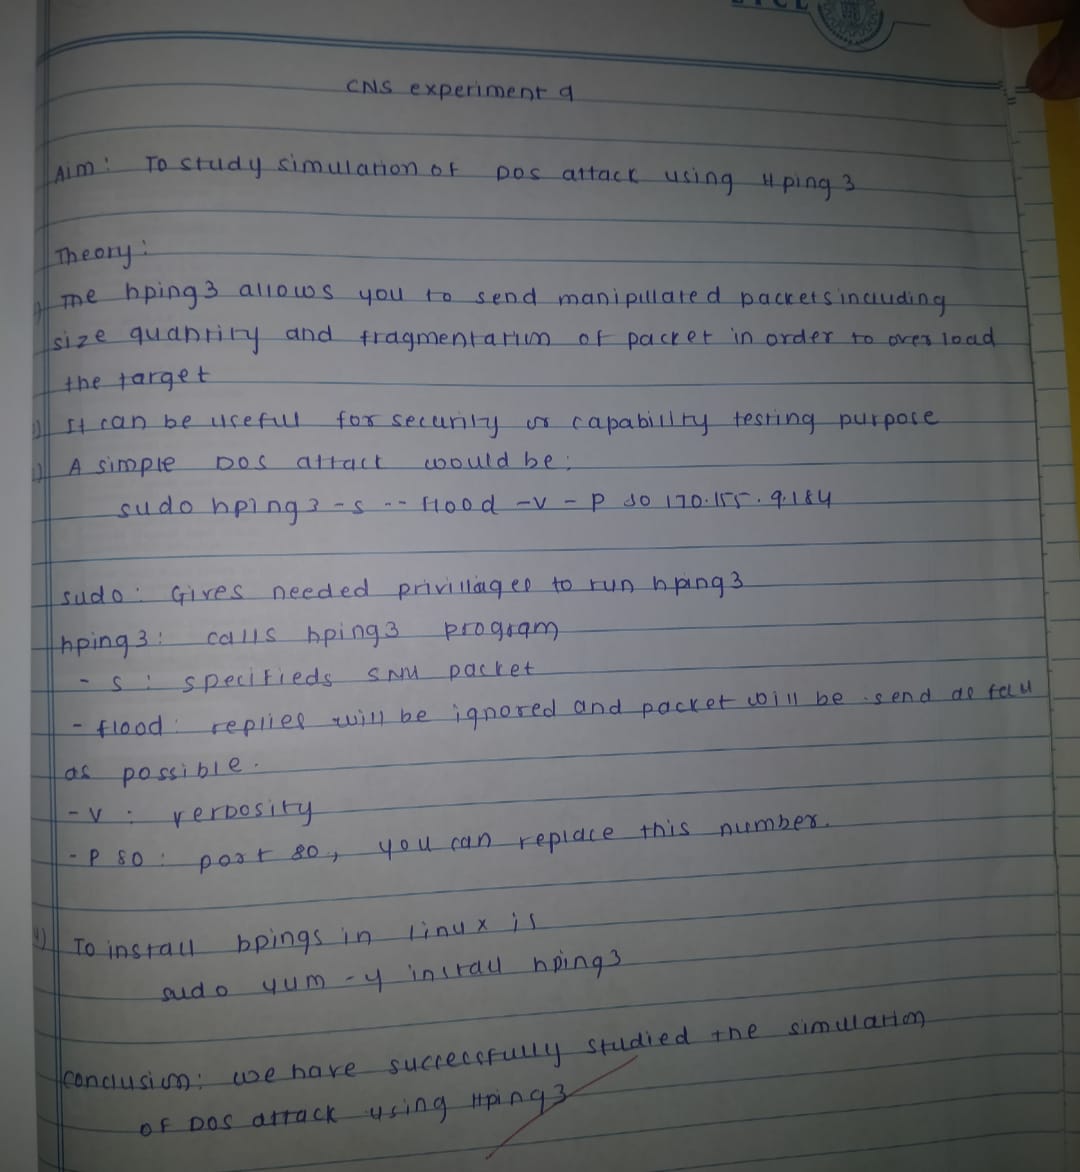 CNS experiment 9
Aim: To study simulation of DOS attack using Hping 3
Theory:
The hping3 allows you to send manipulated packets including
size quantity and fragmentation of packet in order to overload
the target
It can be usefull for security or capability testing purpose
A simple DOS attack would be:
sudo hping3 -s -- flood -v -p 80 170.155.9.184
sudo: Gives needed privillages to run hping3
hping3: calls hping3 program
-s: specifieds packet
-flood: replies will be ignored and packet will be send as
as possible.
-v: verbosity
-P 80: port 80, you can replace this number.
4) To install hpings in linux is
sudo yum -y install hping3
conclusion: we have successfully studied the simulation
of DOS attack using Hping3